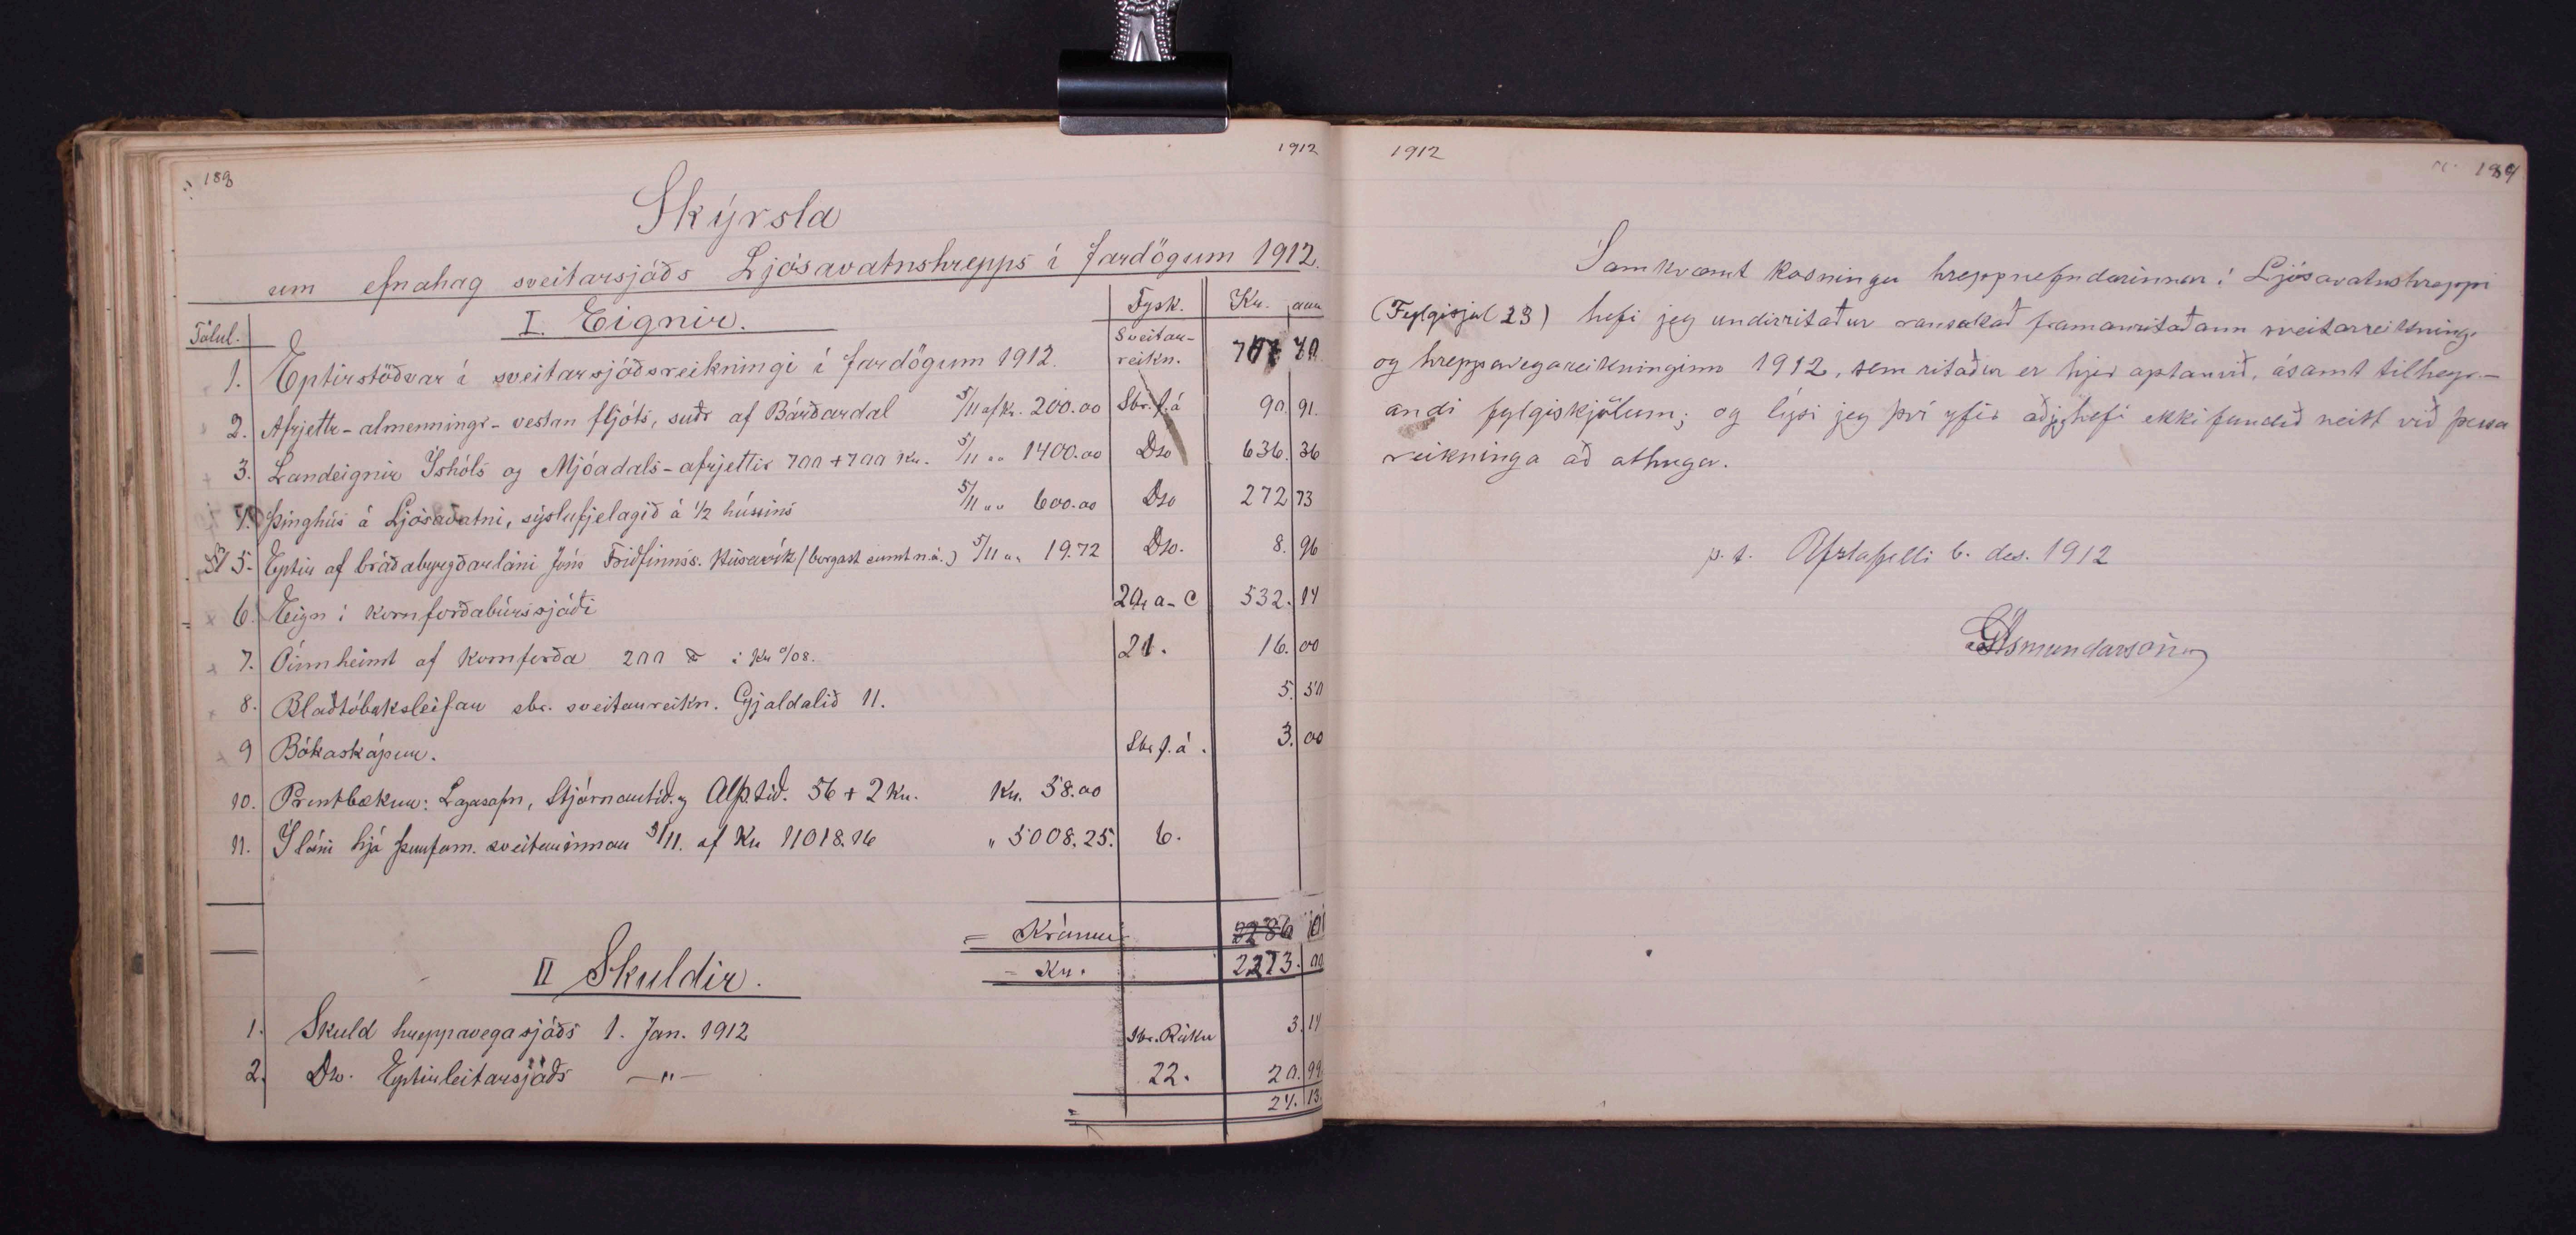 188
1912
Skýrsla
um efnahag sveitarsjóðs Ljósavatnshrepps í fardögum 1912.
I. Eignir.
Tölul.
Fysk.
Kr.
aur
1. Eptirstöðvar í sveitarsjóðsreikningi í fardögum 1912. Sveitar-reikn. 707 70
2. Afrjettr-almenningr-vestan fljóts, suðr af Bárðardal 5/11 af kr. 200.00 Sbr. f.á 90. 91.
3. Landeignir Íshóls og Mjóadals-afrjettir 700+700 Kr. 5/11 „ „ 1400.00 Do 636. 36
4. Þinghús á Ljósavatni, sýslufjelagið á 1/2 húsins 5/11 „ „ 600.00 Do 272 73
5. Eptir af bráðabyrgðarláni Jóns Friðfinnss. Húsavík (borgast sumt n.á.) 5/11 „ „ 19.72 Do. 8. 96
6. Eign í kornforðabúrssjóði 20, a-c 532. 14
7. Óinnheimt af kornforða 200 ℔ í Kr 0/08. 21. 16. 00
8. Blaðtóbaksleifar sbr. sveitarreikn. Gjaldalið 11. 5. 50
9 Bókaskápur. Sbr f. á. 3. 00
10. Prentbækur: Lagasafn, Stjórnartíð. og Alþ.tíð. 56 + 2 kr. Kr. 58.00
11. Í láni hjá þurfam. sveitarinnar 5/11. af Kr 11018.16 „ 5008.25. 6.
= Krónur 2286 10
= Kr. 2273. 00
II Skuldir.
1. Skuld hreppavegasjóðs 1. Jan. 1912 Sbr. Reikn 3. 14
2. Do. Eptirleitarsjóðs —„— 22. 20. 99
= 24. 13.
1912
189
Samkvæmt kosningu hreppnefndarinnar í Ljósavatnshreppi
(Fylgisjal 23) hefi jeg undirritaður ransakað framanritaðann sveitarreikning
og hreppavegareikninginn 1912, sem ritaður er hjer aptanvið, ásamt tilheyr-
andi fylgiskjölum; og lýsi jeg því yfir að jeg hefi ekki fundið neitt við þessa
reikninga að athuga.
p. t. Ofstafelli 6. des. 1912
Ásmundarson